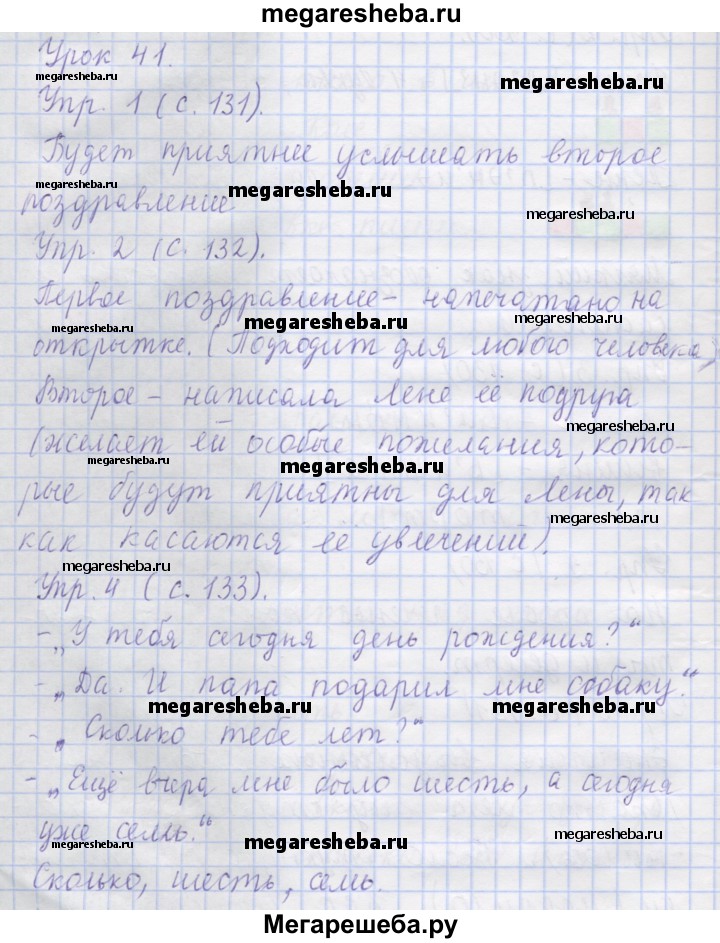 megaresheba.ru
Урок 41.
megaresheba.ru
megaresheba.ru
Упр. 1 (с. 131).
Будет приятнее услышать второе
megaresheba.ru
megaresheba.ru
поздравление
megaresheba.ru
Упр. 2 (с. 132).
Первое поздравление- напечатано на
megaresheba.ru
megaresheba.ru
megaresheba.ru
открытке. (Подходит для любого человека)
Второе - написала Лене её подруга
megaresheba.ru
(желает ей особые пожелания, кото-
megaresheba.ru
megaresheba.ru
рые будут приятны для Лены, так
megaresheba.ru
как касаются её увлечений).
megaresheba.ru
Упр. 4 (с. 133).
- „У тебя сегодня день рождения?“
- „Да. И папа подарил мне собаку.“
megaresheba.ru
megaresheba.ru
- „Сколько тебе лет?“
- „Ещё вчера мне было шесть, а сегодня
уже семь.“
megaresheba.ru
megaresheba.ru
megaresheba.ru
Сколько, шесть, семь.
Мегарешеба.ру